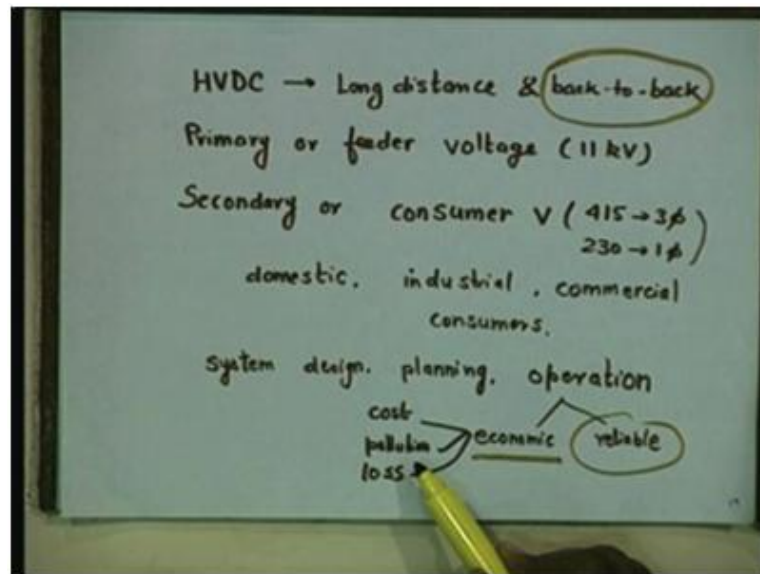 HVDC → Long distance & back-to-back
Primary or feeder voltage (11 kV)
Secondary or consumer V ( 415 → 3φ
230 → 1φ )
domestic, industrial, commercial
consumers.
system design, planning, operation
cost
economic reliable
pollution
loss